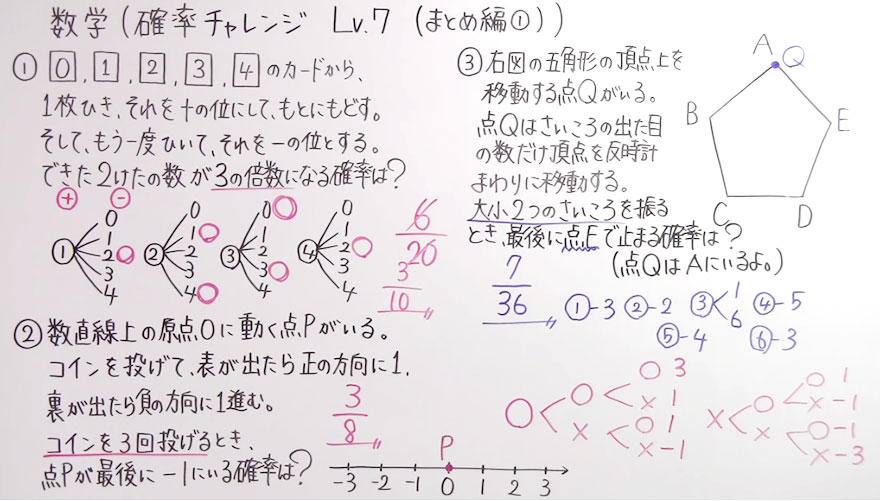 数学(確率チャレンジ Lv.7 (まとめ編①))
① 0, 1, 2, 3, 4 のカードから、
1枚ひき、それを十の位にして、もとにもどす。
そして、もう一度ひいて、それを一の位とする。
できた2けたの数が3の倍数になる確率は?
⊕ ⊖
① 0 1 2 3 4
② 0 1 2 3 4
③ 0 1 2 3 4
④ 0 1 2 3 4
6/20
3/10
② 数直線上の原点Oに動く点Pがいる。
コインを投げて、表が出たら正の方向に1,
裏が出たら負の方向に1進む。
コインを3回投げるとき、
点Pが最後に-1にいる確率は?
3/8
P
-3 -2 -1 0 1 2 3
③ 右図の五角形の頂点上を
移動する点Qがいる。
点Qはさいころの出た目
の数だけ頂点を反時計
まわりに移動する。
大小2つのさいころを振る
とき、最後に点Eで止まる確率は?
(点QはAにいるよ。)
A Q
B E
C D
7/36
①-3 ②-2 ③<1 6 ④-5
⑤-4 ⑥-3
○<○<○ 3
× 1
×<○ 1
×-1
×<○<○ 1
×-1
×<○-1
×-3